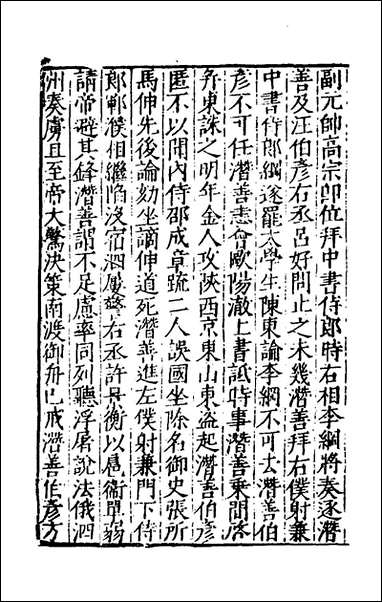 副元帥高宗即位拜中書侍郎時右相李綱將奏逐潛
善及汪伯彥右丞呂好問止之未幾潛善拜右僕射兼
中書侍郎綱遂罷太學生陳東論李綱不可去潛善伯
彥不可任潛善恚會歐陽澈上書詆時事潛善乘間啓
并東誅之明年金人攻陝西京東山東盗起潛善伯彥
匿不以聞內侍邵成章疏二人誤國坐除名御史張所
馬伸先後論劾坐謫伸道死潛善進左僕射兼門下侍
郎鄆濮相繼陷沒宿泗屢警右丞許景衡以扈衞單弱
請帝避其鋒潛善謂不足慮率同列聽浮屠說法俄泗
州奏虜且至帝大驚決策南渡御舟已戒潛善伯彥方